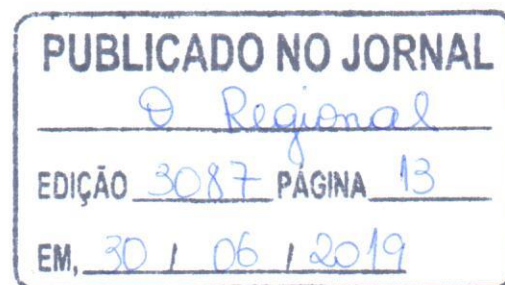 PUBLICADO NO JORNAL
O Regional
EDIÇÃO 3087 PÁGINA 13
EM, 30 / 06 / 2019